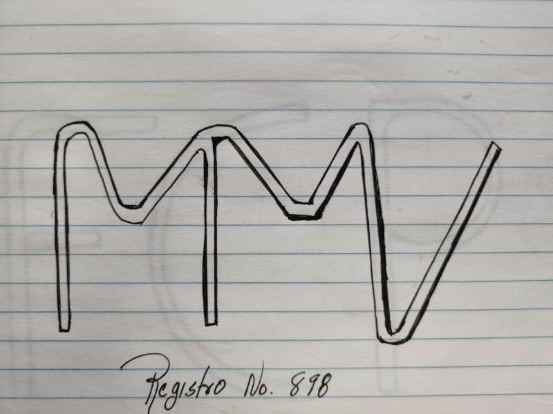 MMV
Registro No. 898